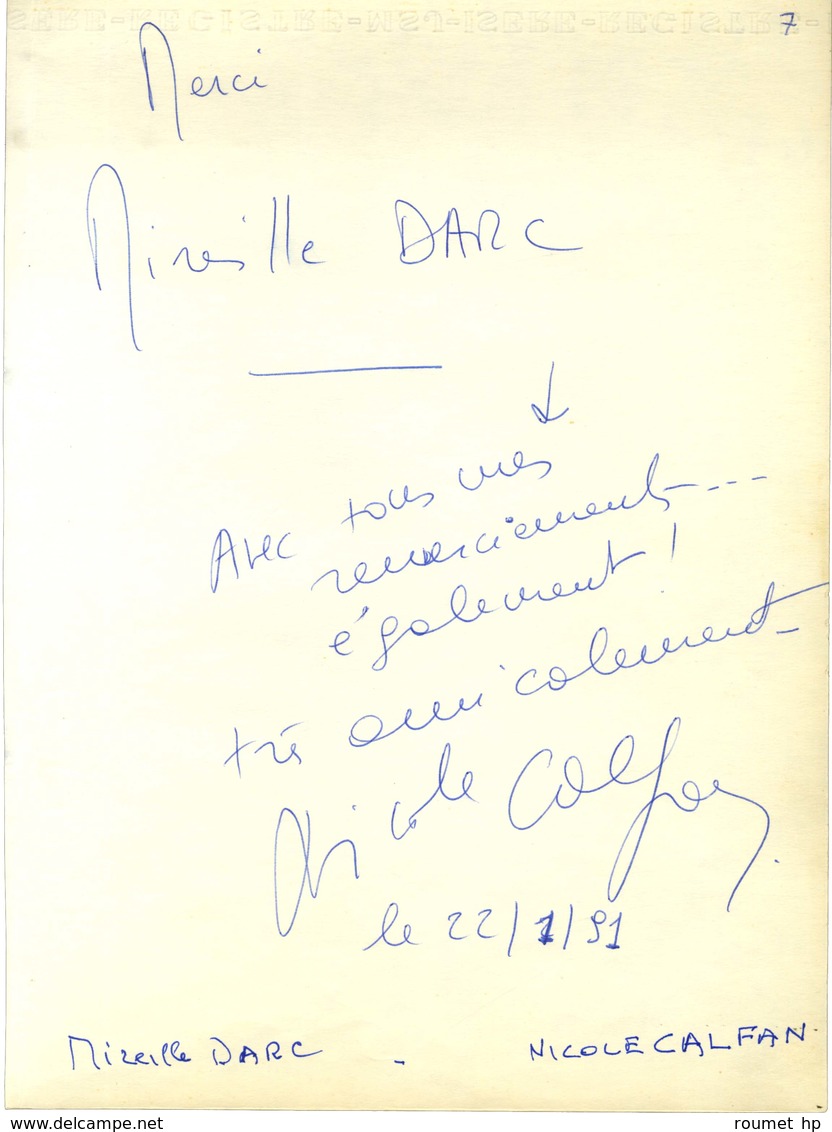 ISERE-REGISTRE-MSJ-ISERE-REGISTRE-
7
Merci
Mireille DARC
Avec tous mes
remerciements---
également !
très amicalement-
Nicole Calfan
le 22/1/91
Mireille DARC - NICOLE CALFAN
www.delcampe.net
roumet hp